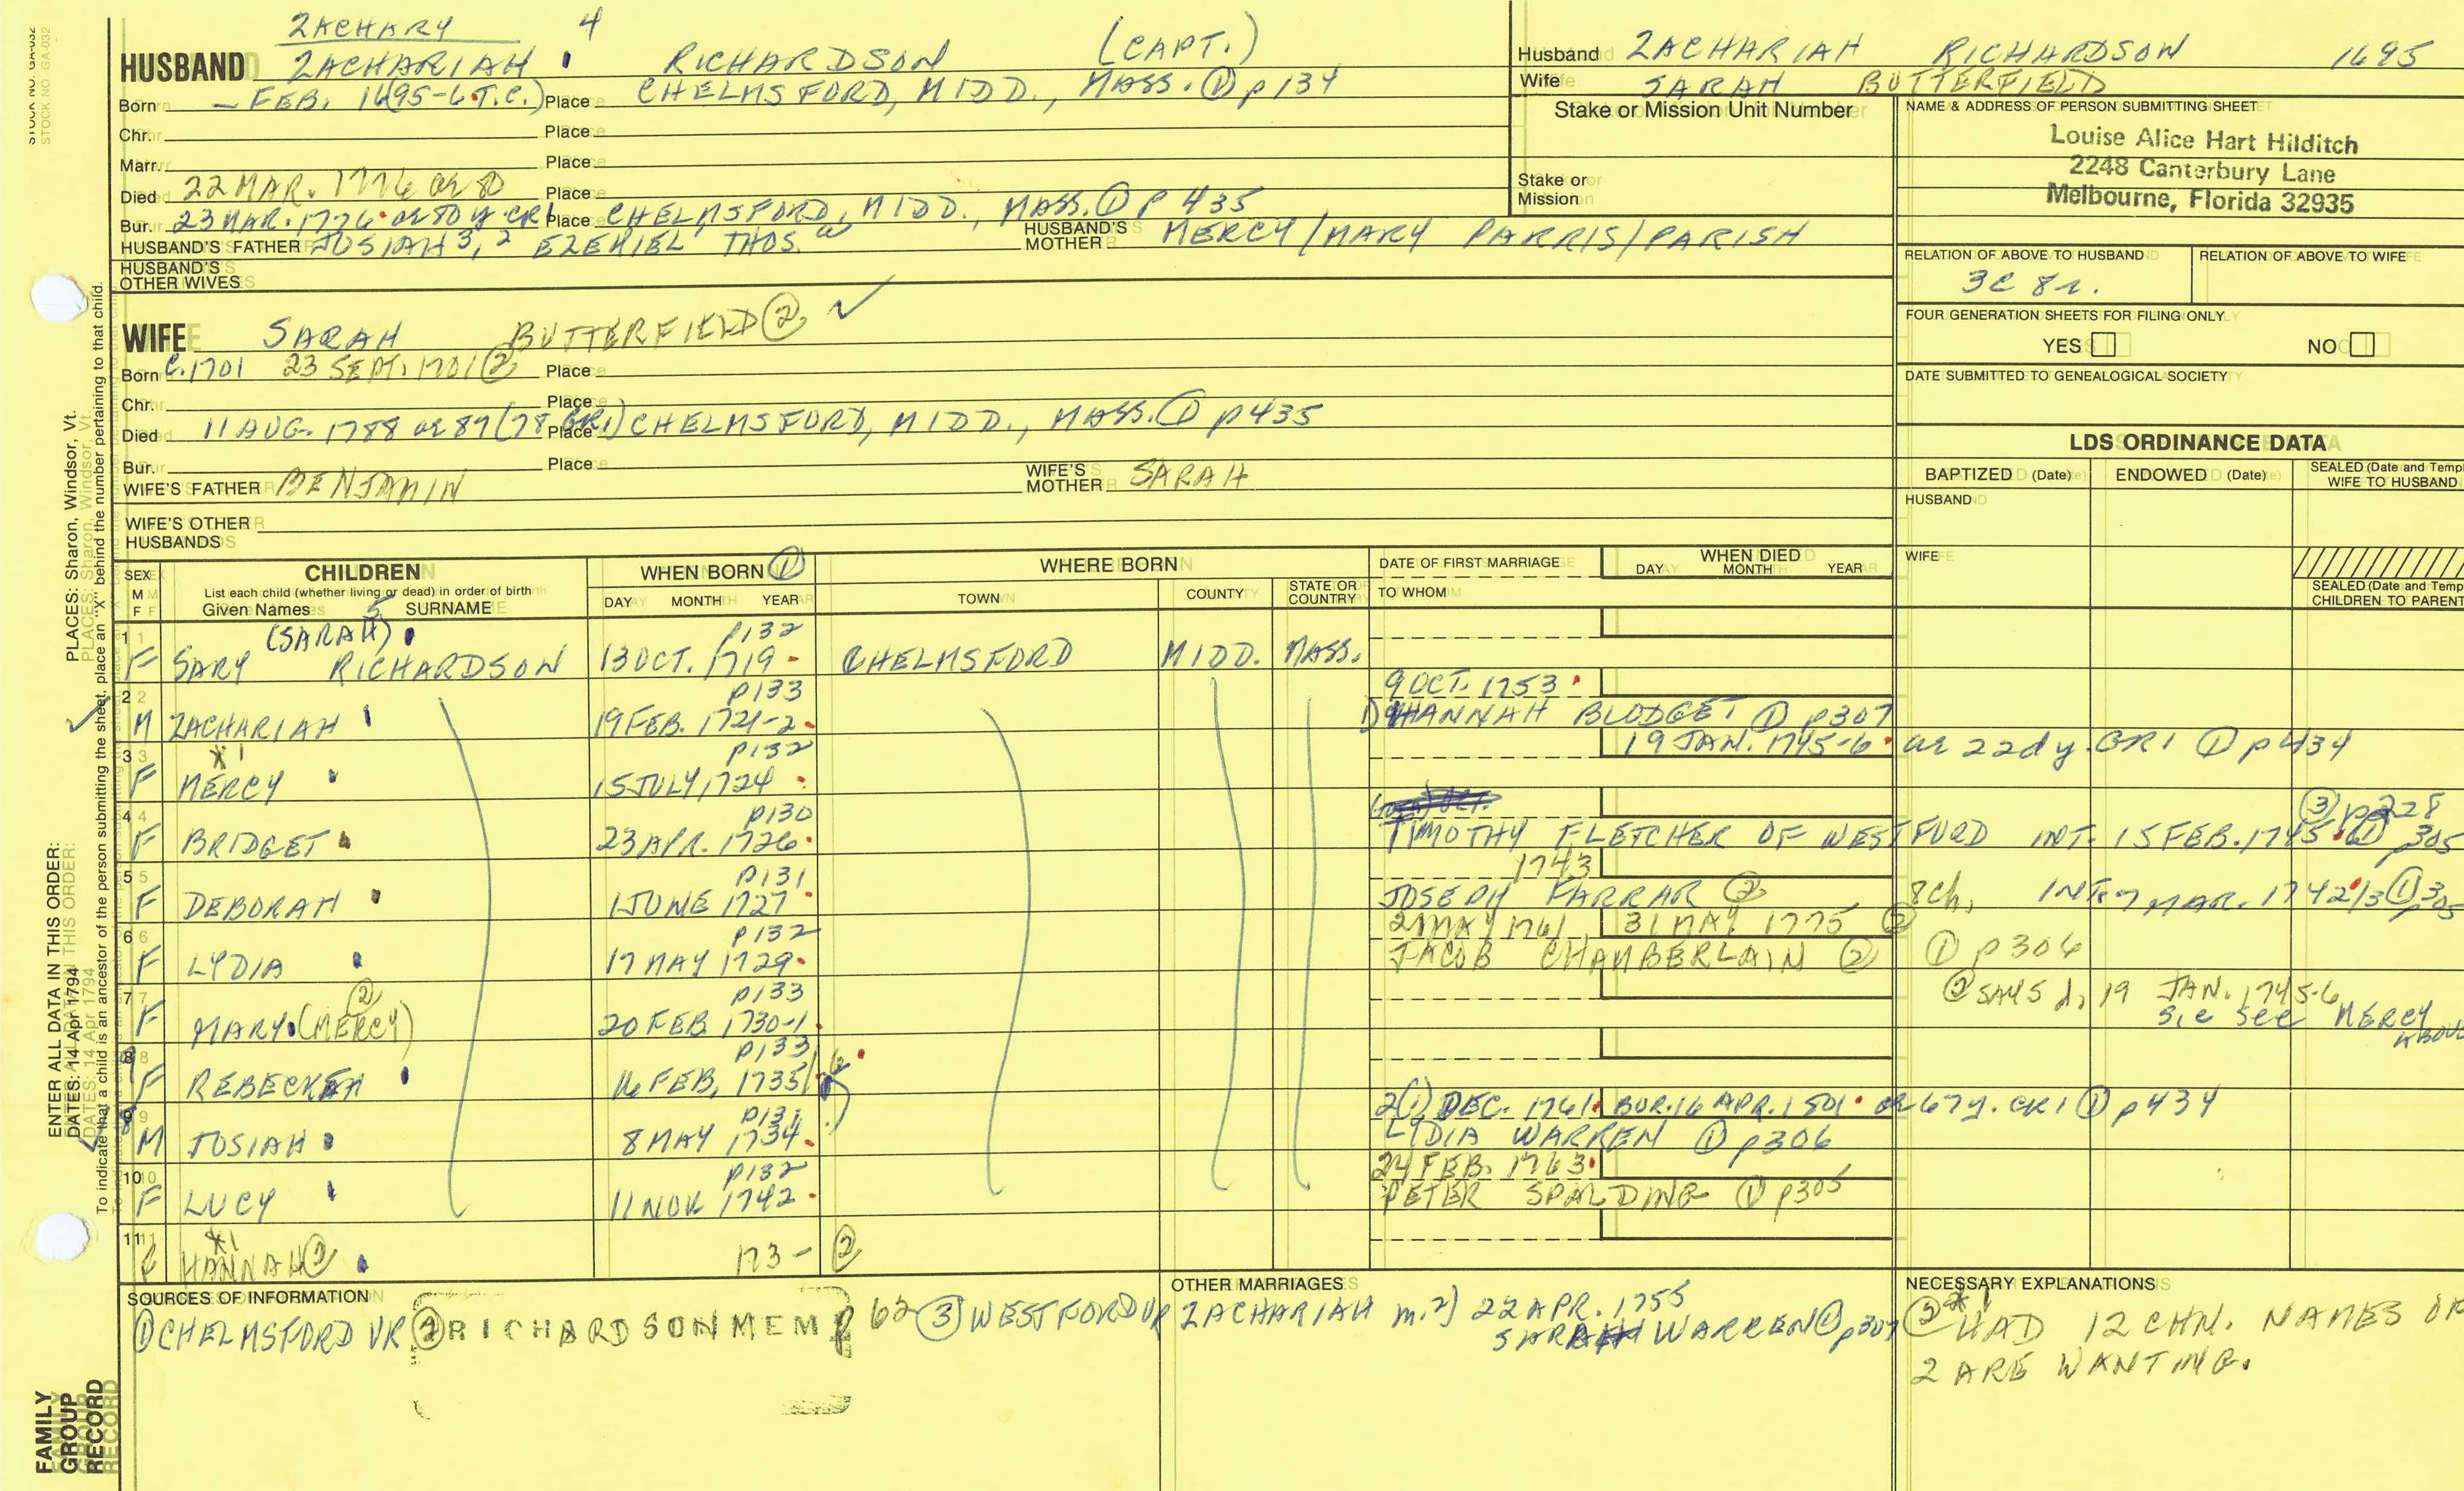 STOCK NO. GA-032
ZACHARY 4
HUSBAND ZACHARIAH RICHARDSON (CAPT.)
Born — FEB. 1695-6 T.C.) Place CHELMSFORD, MIDD., MASS. ① p134
Chr. Place
Marr. Place
Died 22 MAR. 1776 ae 80 Place
Bur. 23 MAR. 1776 ae 80 y CR1 Place CHELMSFORD, MIDD., MASS. ① p 435
HUSBAND'S FATHER JOSIAH 3, 2 EZEKIEL THOS. HUSBAND'S MOTHER MERCY/MARY PARRIS/PARISH
HUSBAND'S OTHER WIVES
Husband ZACHARIAH RICHARDSON 1695
Wife SARAH BUTTERFIELD
Stake or Mission Unit Number
Stake or Mission
NAME & ADDRESS OF PERSON SUBMITTING SHEET
Louise Alice Hart Hilditch
2248 Canterbury Lane
Melbourne, Florida 32935
RELATION OF ABOVE TO HUSBAND RELATION OF ABOVE TO WIFE
3C 8r.
FOUR GENERATION SHEETS FOR FILING ONLY
YES NO
DATE SUBMITTED TO GENEALOGICAL SOCIETY
WIFE SARAH BUTTERFIELD ② ✓
Born C.1701 23 SEPT. 1701 ② Place
Chr. Place
Died 11 AUG. 1788 ae 87 (78 GR1) Place CHELMSFORD, MIDD., MASS. ① p435
Bur. Place
WIFE'S FATHER BENJAMIN WIFE'S MOTHER SARAH
WIFE'S OTHER HUSBANDS
LDS ORDINANCE DATA
BAPTIZED (Date) ENDOWED (Date) SEALED (Date and Temp
WIFE TO HUSBAND
HUSBAND
WIFE
SEALED (Date and Temp
CHILDREN TO PARENT
SEX M F CHILDREN
List each child (whether living or dead) in order of birth
Given Names 5 SURNAME
WHEN BORN ①
DAY MONTH YEAR
WHERE BORN
TOWN COUNTY STATE OR COUNTRY
DATE OF FIRST MARRIAGE
TO WHOM
WHEN DIED
DAY MONTH YEAR
1 (SARAH) p132
F SARY RICHARDSON 13 OCT. 1719 CHELMSFORD MIDD. MASS.
2 p133 9 OCT. 1753
M ZACHARIAH 19 FEB. 1721-2 1) HANNAH BLODGET ① p307
3 *1 p132 19 JAN. 1745-6 ae 22dy. GR1 ① p434
F MERCY 15 JULY 1724
4 p130 ③ p228
F BRIDGET 23 APR. 1726 TIMOTHY FLETCHER OF WESTFORD INT. 15 FEB. 1745-6 ① p305
5 p131 1743
F DEBORAH 1 JUNE 1727 JOSEPH FARRAR ② 8ch, INT. 7 MAR. 1742/3 ① p305
6 p132 21 MAY 1761 31 MAY 1775 ②
F LYDIA 17 MAY 1729 JACOB CHAMBERLAIN ② ① p306
7 ② p133 ② SAYS d. 19 JAN. 1745-6
F MARY (MERCY) 20 FEB. 1730-1 sic see MERCY ABOVE
8 p133
F REBECKEH 16 FEB. 1735/6
9 p131 2(1) DEC. 1761 BUR. 16 APR. 1801 ae 67y. GR1 ① p434
M JOSIAH 8 MAY 1734 LYDIA WARREN ① p306
10 p132 24 FEB. 1763
F LUCY 11 NOV. 1742 PETER SPALDING ① p305
11 *1
F HANNAH ② 173- ②
SOURCES OF INFORMATION
① CHELMSFORD VR ② RICHARDSON MEM p 62 ③ WESTFORD VR
OTHER MARRIAGES
ZACHARIAH m.2) 22 APR. 1755
SARAH WARREN ① p307
NECESSARY EXPLANATIONS
② *1 HAD 12 CHN. NAMES OF
2 ARE WANTING.
PLACES: Sharon, Windsor, Vt.
ENTER ALL DATA IN THIS ORDER:
DATES: 14 Apr 1794
To indicate that a child is an ancestor of the person submitting the sheet, place an "X" behind the number pertaining to that child.
FAMILY
GROUP
RECORD